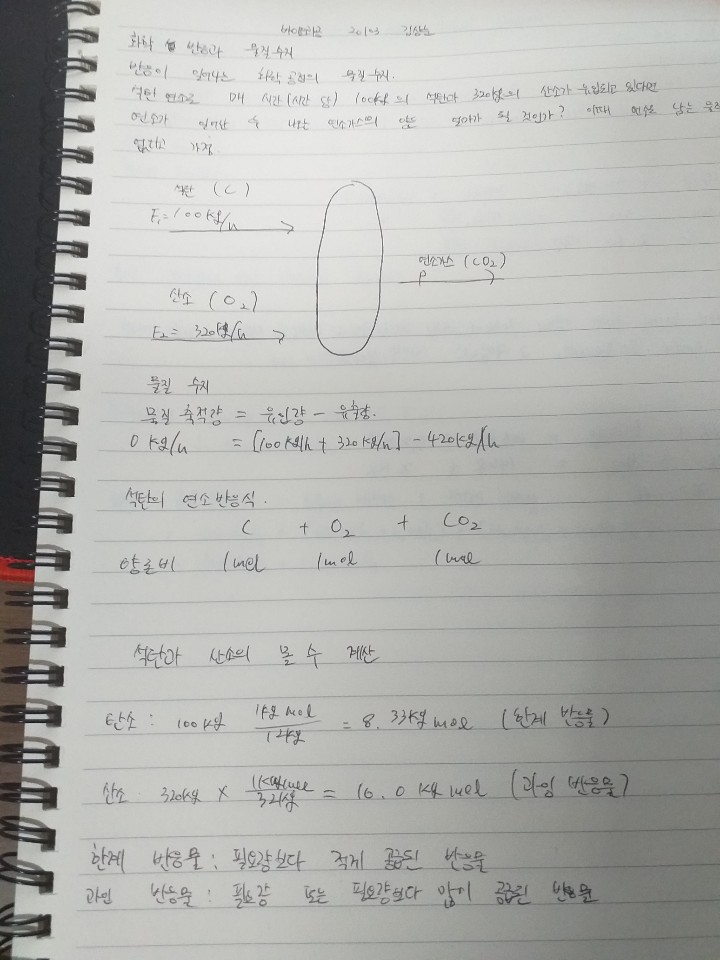 20103 김상오
화학 반응과 물질수지
반응이 일어나는 화학 공정의 물질수지.
석탄 연소로 매 시간(시간 당) 100kg의 석탄과 320kg의 산소가 유입되고 있다면
연소가 일어난 후 나가는 연소가스의 양은 얼마가 될 것인가? 이때 연소로 남는 물질
없다고 가정
석탄 (C)
F₁=100kg/h
연소가스 (CO₂)
P
산소 (O₂)
F₂= 320kg/h
물질 수지
물질 축적량 = 유입량 - 유출량.
0 kg/h = [100kg/h + 320kg/h] - 420kg/h
석탄의 연소반응식.
C + O₂ + CO₂
양론비 1mol 1mol 1mol
석탄과 산소의 몰 수 계산
탄소: 100kg 1kg mol/12kg = 8.33kg mol (한계 반응물)
산소 320kg × /32kg = 10.0 kg mol (과잉 반응물)
한계 반응물: 필요량보다 적게 공급된 반응물
과잉 반응물: 필요량 또는 필요량보다 많이 공급된 반응물